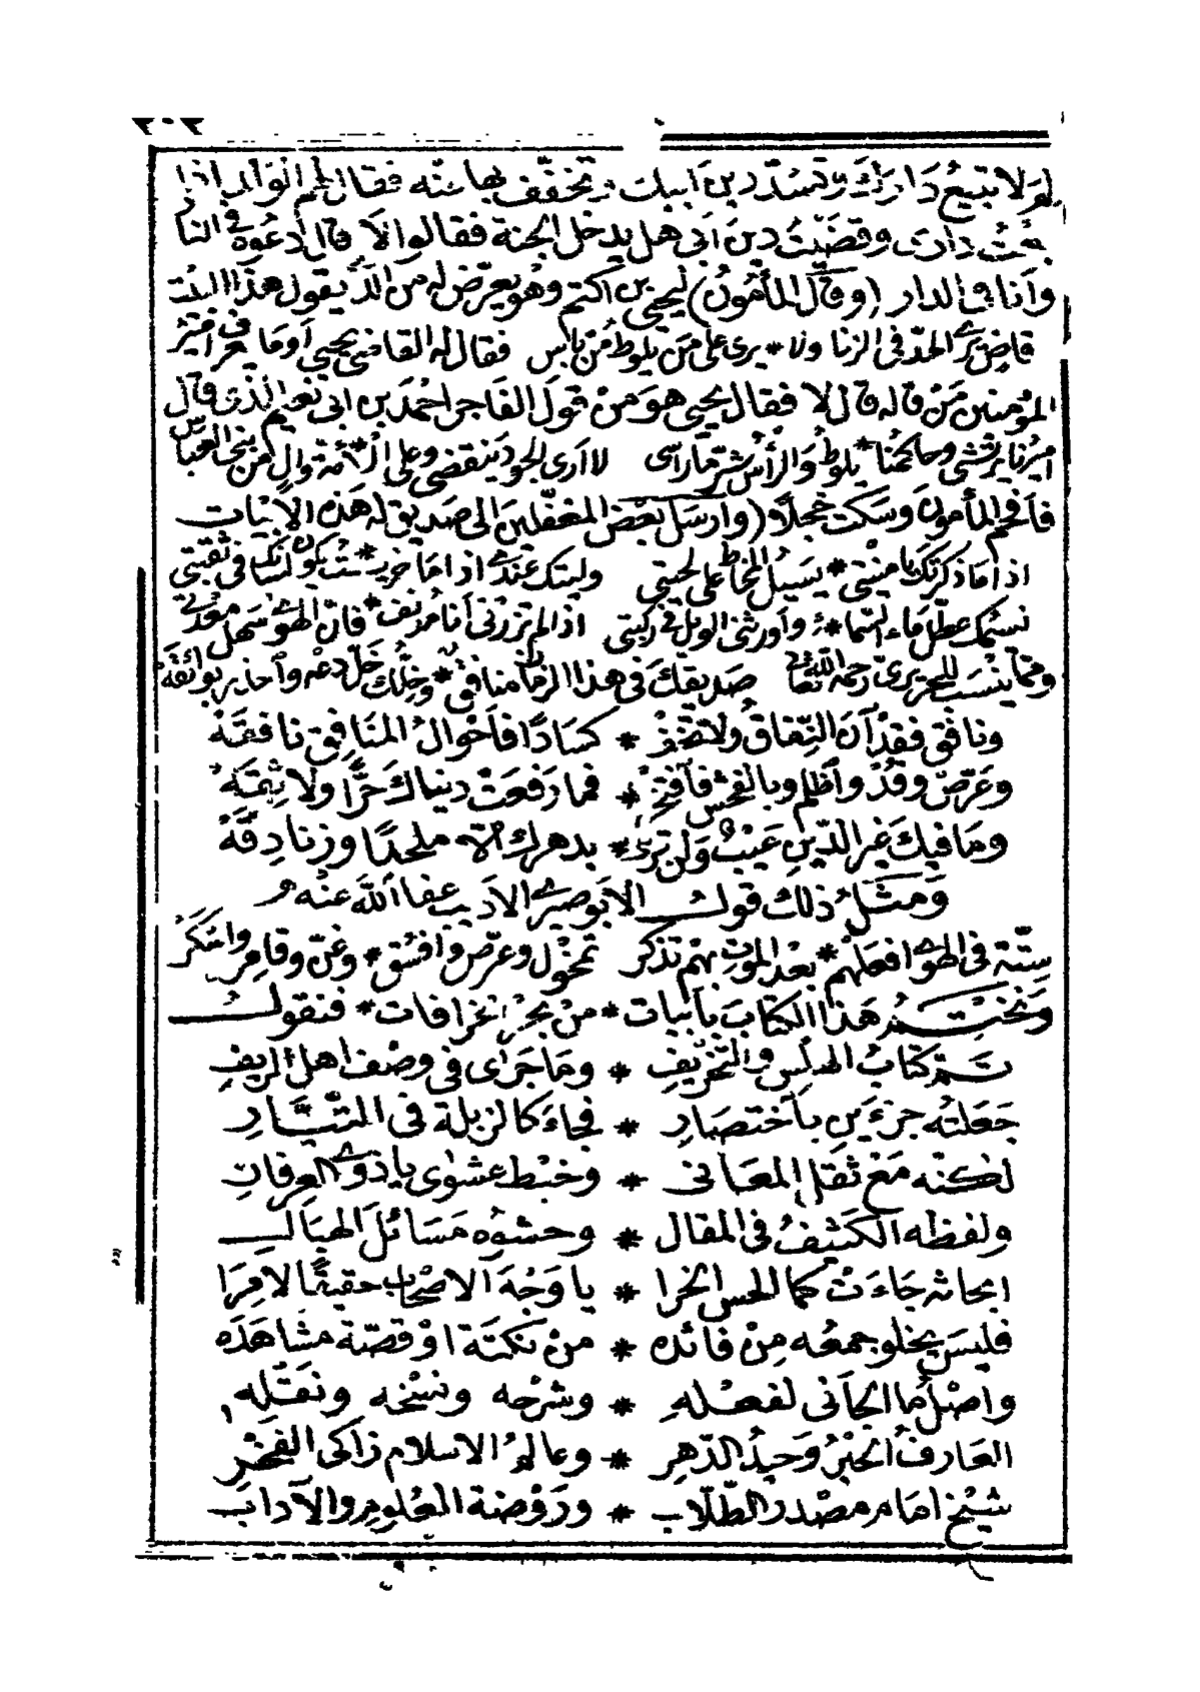 ٢٠٢
لم لا تبيع دارك وتسدّ دين أبيك وتخفّف بها عنه فقال لهم انوالي اذا
بعتُ دارى وقضيت دين أبى هل يدخل الجنة فقالوا لا قال ادعوه فى النار
وأنا فى الدار (وقال المأمون) ليحيى بن اكثم وهو يعرّض له من الذى يقول هذا البيت
قاض يرى الحدّ فى الزنا ولا * يرى على من يلوط من بأس فقال له القاضى يحيى أوما يعرف امير
المؤمنين مَن قاله قال لا فقال يحيى هو من قول الفاجر احمد بن ابى نعيم الذى قال
اميرنا يرتشى وحاكمنا * يلوط والرأس شرّ ما راسى لا أرى الجور ينقضى وعلى الأمّة وال من بنى العباس
فأفحم المأمون وسكت خجلا (وأرسل بعض المغفلين الى صديق له هذه الابيات
اذا ما ذكرتك يا منيتى * يسيل المخاط على لحيتى وليتك عندى اذا ما خريت * تكون لسانك فى ثقبتى
نسيمك عطل ماء السّماء * وأورثنى الويل فى ركبتى اذا لم تزرنى أنا مرنف * فانّ الهوى سهل موتى
وممّا ينسب للحريرى رحمه الله تعالى صديقك فى هذا الزمان منافق * وخلّك خلّ دعه وأحذر بوائقه
ونافق فقد آن النّفاق ولا تخف * كسادًا فأحوال المنافق نافقه
وعَرّص وقد وأظلم وبالفحش فأفتخر * فما رفعت دنياك حرًّا ولا ثقه
وما فيك غير الدّين عيب ولن ترى * بدهرك الّا ملحدًا وزنادقه
ومثل ذلك قول الأبوصيرى الاديب عفا الله عنه
ستّة فى الهوى افعلهم * بعد الموت بهم تذكر تمخول وعرّص وافسق * وغنّ وقامر واسكر
ونختتم هذا الكتاب بأبيات * من بحر الخرافات * فنقول
تمّ كتاب الهلس والتخريف * وما جرى فى وصف اهل الريف
جعلته جزءين بأختصار * فجاء كالزبلة فى التيّار
لكنّه مع ثقل المعانى * وخبط عشوى يا ذوى العرفان
ولفظه الكثيف فى المقال * وحشوه مسائل الهبال
ابحاثه جاءت كما لحس الخرا * يا وجه الاصحاب حقيقًا لا مرا
فليس يخلو جمعه من فائده * من نكتة أو قصّة مشاهده
واصل ما الجأنى لفعله * وشرحه ونسخه ونقله
العارف الحبر وحيد الدّهر * وعالم الاسلام زاكى الفخر
شيخ امام مصدر الطّلّاب * وروضة العلوم والآداب